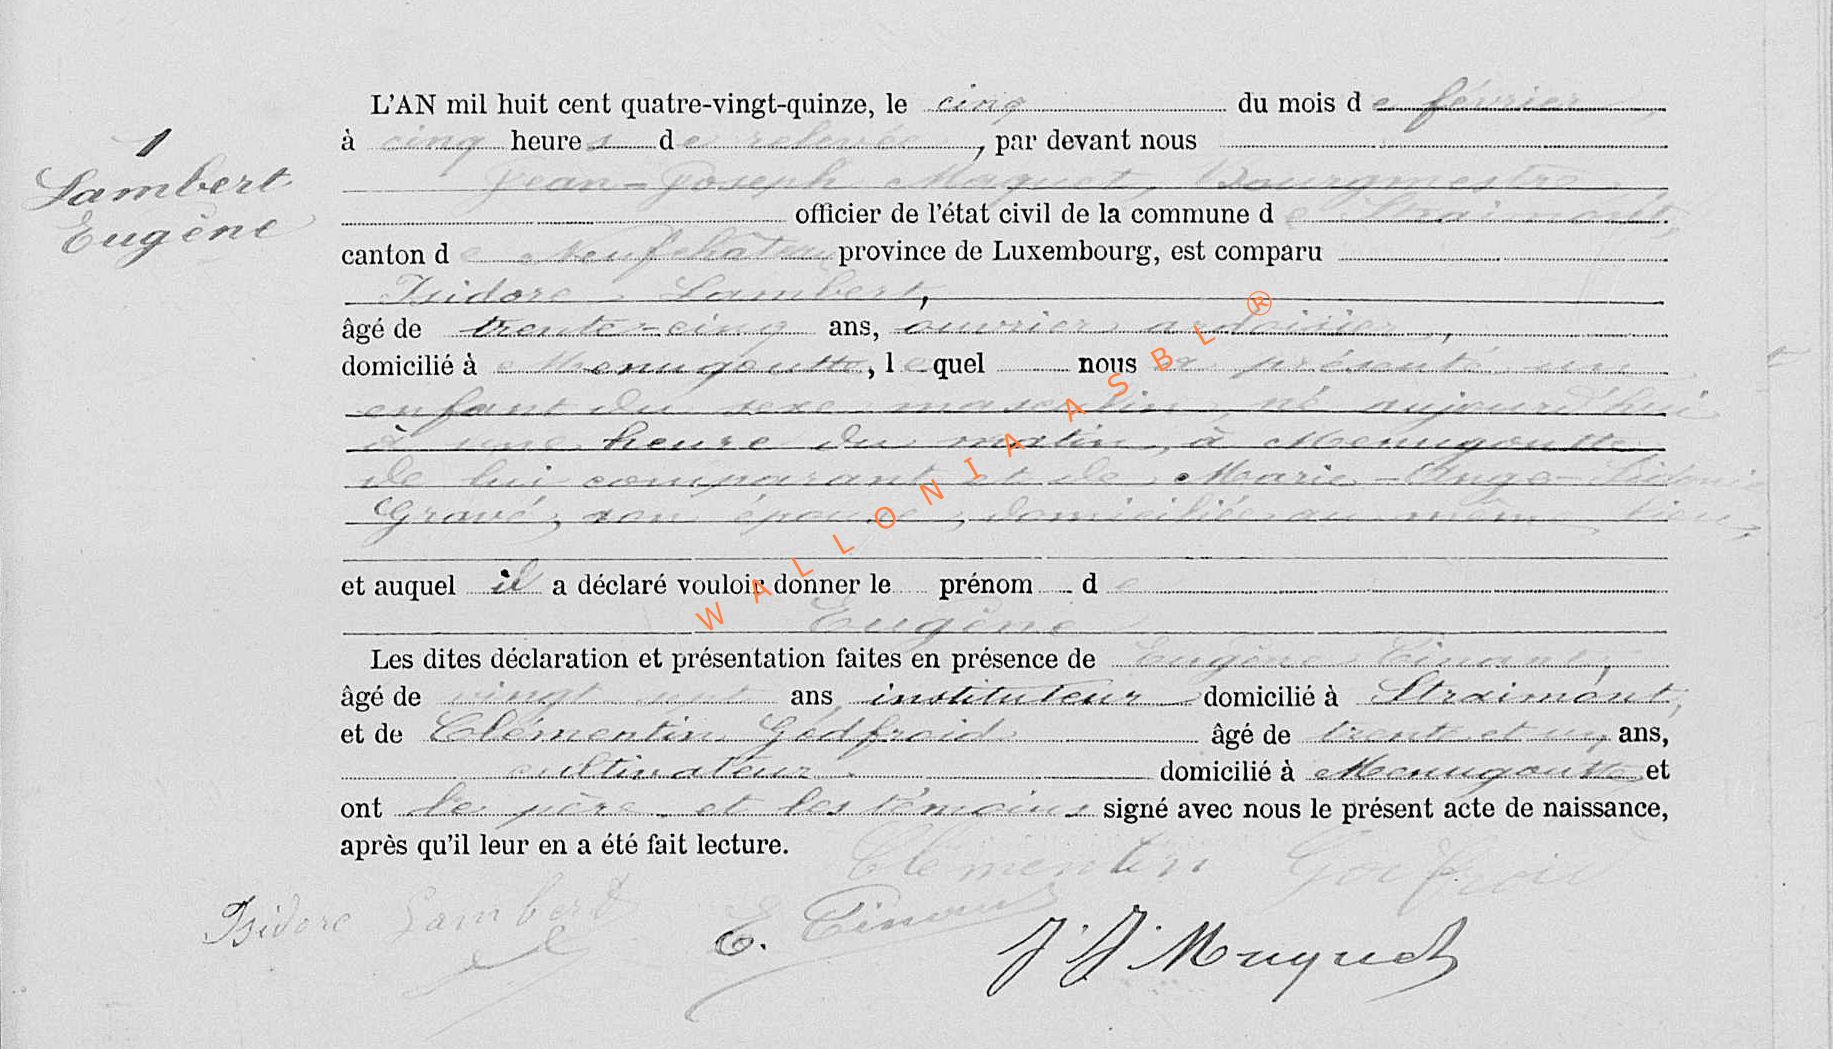 1
Lambert
Eugène
L'AN mil huit cent quatre-vingt-quinze, le cinq du mois de février
à cinq heures de relevée, par devant nous
Jean-Joseph Maquet, Bourgmestre
officier de l'état civil de la commune de Straimont,
canton de Neufchâteau province de Luxembourg, est comparu
Isidore Lambert,
âgé de trente-cinq ans, ouvrier ardoisier,
domicilié à Menugoutte, lequel nous a présenté un
enfant du sexe masculin, né aujourd'hui
à une heure du matin, à Menugoutte
de lui comparant et de Marie-Ange-Sidonie
Gravé, son épouse, domiciliée au même lieu,
et auquel il a déclaré vouloir donner le prénom de
Eugène
Les dites déclaration et présentation faites en présence de Eugène Tinant,
âgé de vingt sept ans instituteur domicilié à Straimont,
et de Clémentin Godfroid âgé de trente et un ans,
cultivateur domicilié à Menugoutte et
ont le père et les témoins signé avec nous le présent acte de naissance,
après qu'il leur en a été fait lecture.
Clémentin Godfroid
Isidore Lambert E. Tinant J. J. Maquet
WALLONIA ASBL ®